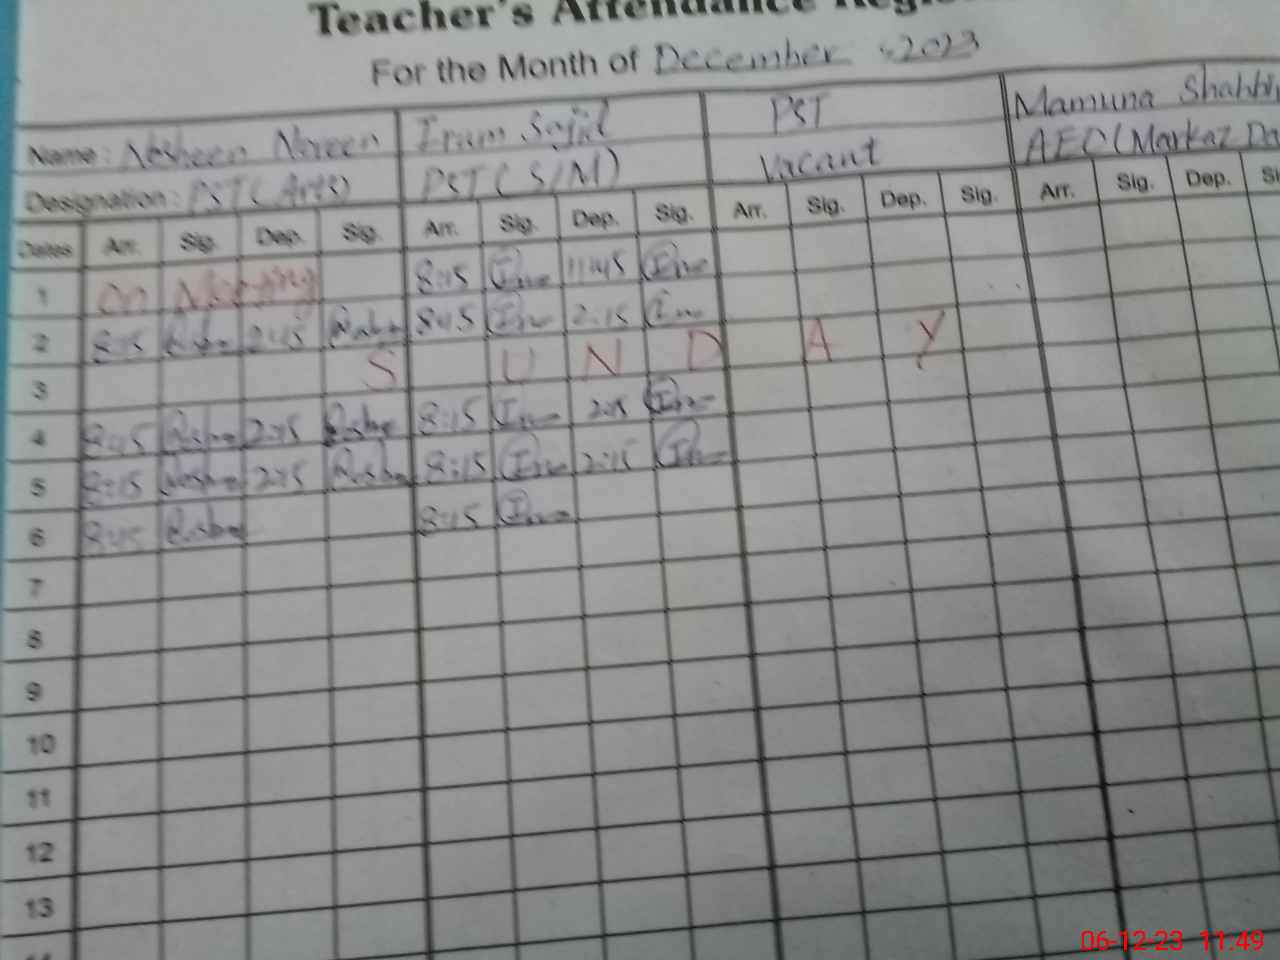 Teacher's Attendance
For the Month of December 2023
Name: Nosheen Noreen Iram Sajid PST Mamuna
Designation: PST (Arts) PST (S/M) Vacant AEO (Markaz
Dates Arr. Sig. Dep. Sig. Arr. Sig. Dep. Sig. Arr. Sig. Dep. Sig. Arr. Sig. Dep.
1 on Meeting 8:15 11:45
2 8:15 2:15 8:15 2:15
3 S U N D A Y
4 8:15 2:15 8:15 2:15
5 8:15 2:15 8:15 2:15
6 8:15 8:15
7
8
9
10
11
12
13
06-12-23 11:49